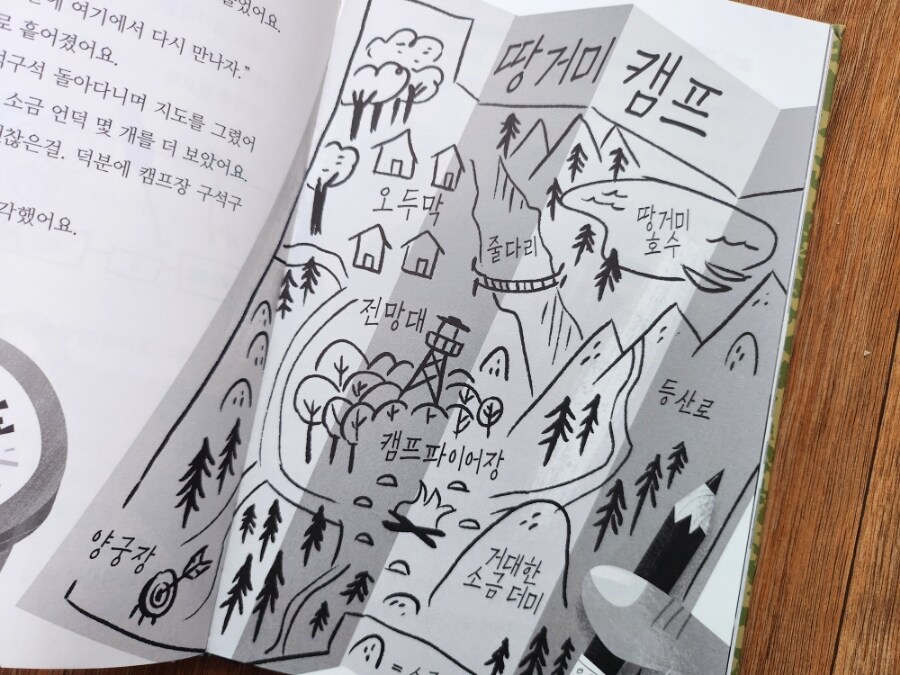 여기에서 다시 만나자.”
흩어졌어요.
돌아다니며 지도를 그렸어
소금 언덕 몇 개를 더 보았어요.
덕분에 캠프장 구석구
각했어요.
땅거미 캠프
오두막
줄다리
땅거미
호수
전망대
등산로
캠프파이어장
양궁장
거대한
소금 더미